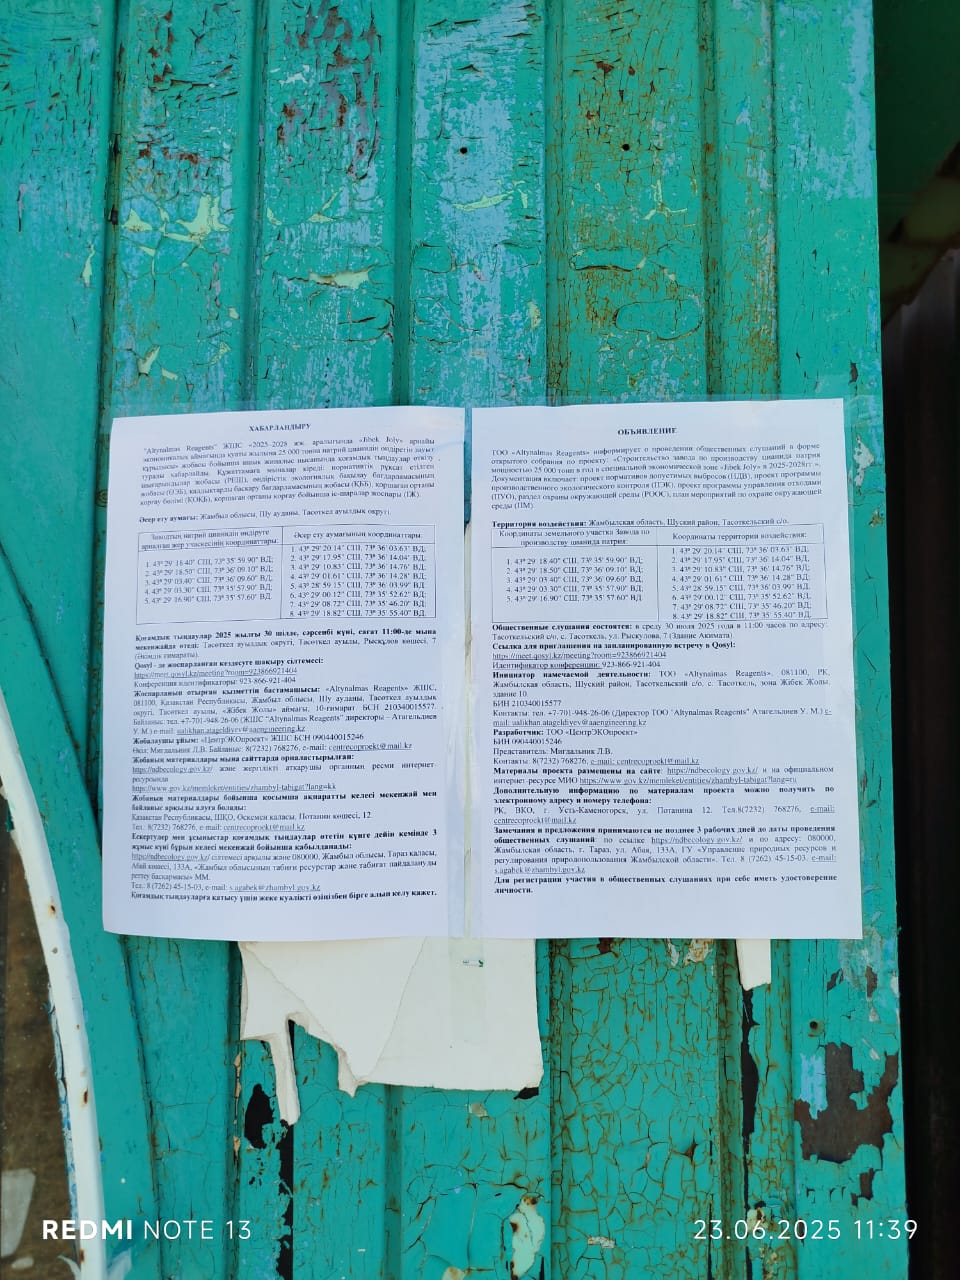 ХАБАРЛАНДЫРУ
"Altynalmas Reagents" ЖШС «2025-2028 жж. аралығында «Jibek Joly» арнайы
экономикалық аймағында қуаты жылына 25 000 тонна натрий цианидін өндіретін зауыт
құрылысы» жобасы бойынша ашық жиналыс нысанында қоғамдық тыңдаулар өткізу
туралы хабарлайды. Құжаттамаға мыналар кіреді: нормативтік рұқсат етілген
шығарындылар жобасы (РЕШ), өндірістік экологиялық бақылау бағдарламасының
жобасы (ӨЭБ), қалдықтарды басқару бағдарламасының жобасы (ҚББ), қоршаған ортаны
қорғау бөлімі (ҚОҚБ), қоршаған ортаны қорғау бойынша іс-шаралар жоспары (ІЖ).
Әсер ету аумағы: Жамбыл облысы, Шу ауданы, Тасөткел ауылдық округі.
Зауыттың натрий цианидін өндіруге
арналған жер учаскесінің координаттары:
1. 43º 29' 18.40" СШ, 73º 35' 59.90" ВД;
2. 43º 29' 18.50" СШ, 73º 36' 09.10" ВД;
3. 43º 29' 03.40" СШ, 73º 36' 09.60" ВД;
4. 43º 29' 03.30" СШ, 73º 35' 57.90" ВД;
5. 43º 29' 16.90" СШ, 73º 35' 57.60" ВД.
Әсер ету аумағының координаттары:
1. 43º 29' 20.14" СШ, 73º 36' 03.63" ВД;
2. 43º 29' 17.95" СШ, 73º 36' 14.04" ВД;
3. 43º 29' 10.83" СШ, 73º 36' 14.76" ВД;
4. 43º 29' 01.61" СШ, 73º 36' 14.28" ВД;
5. 43º 28' 59.15" СШ, 73º 36' 03.99" ВД;
6. 43º 29' 00.12" СШ, 73º 35' 52.62" ВД;
7. 43º 29' 08.72" СШ, 73º 35' 46.20" ВД;
8. 43º 29' 18.82" СШ, 73º 35' 55.40" ВД.
Қоғамдық тыңдаулар 2025 жылғы 30 шілде, сәрсенбі күні, сағат 11:00-де мына
мекенжайда өтеді: Тасөткел ауылдық округі, Тасөткел ауылы, Рысқұлов көшесі, 7
(Әкімдік ғимараты).
Qosyl - де жоспарланған кездесуге шақыру сілтемесі:
https://meet.qosyl.kz/meeting?room=923866921404
Конференция идентификаторы: 923-866-921-404
Жоспарланып отырған қызметтің бастамашысы: «Altynalmas Reagents» ЖШС,
081100, Қазақстан Республикасы, Жамбыл облысы, Шу ауданы, Тасөткел ауылдық
округі, Тасөткел ауылы, «Жібек Жолы» аймағы, 10-ғимарат БСН 210340015577.
Байланыс: тел. +7-701-948-26-06 (ЖШС "Altynalmas Reagents" директоры – Атагельдиев
У. М.) e-mail: ualikhan.atageldiyev@aaengineering.kz
Жобалаушы ұйым: «ЦентрЭКОпроект» ЖШС БСН 090440015246
Өкіл: Мигдальник Л.В. Байланыс: 8(7232) 768276, e-mail: centrecoproekt@mail.kz
Жобаның материалдары мына сайттарда орналастырылған:
https://ndbecology.gov.kz/ және жергілікті атқарушы органның ресми интернет-
ресурсында
https://www.gov.kz/memleket/entities/zhambyl-tabigat?lang=kk
Жобаның материалдары бойынша қосымша ақпаратты келесі мекенжай мен
байланыс арқылы алуға болады:
Қазақстан Республикасы, ШҚО, Өскемен қаласы, Потанин көшесі, 12
Тел.: 8(7232) 768276, e-mail: centrecoproekt@mail.kz
Ескертулер мен ұсыныстар қоғамдық тыңдаулар өтетін күнге дейін кемінде 3
жұмыс күні бұрын келесі мекенжай бойынша қабылданады:
https://ndbecology.gov.kz/ сілтемесі арқылы және 080000, Жамбыл облысы, Тараз қаласы,
Абай көшесі, 133А, «Жамбыл облысының табиғи ресурстар және табиғат пайдалануды
реттеу басқармасы» ММ.
Тел.: 8 (7262) 45-15-03, e-mail: s.agabek@zhambyl.gov.kz
Қоғамдық тыңдауларға қатысу үшін жеке куәлікті өзіңізбен бірге алып келу қажет.
ОБЪЯВЛЕНИЕ
ТОО «Altynalmas Reagents» информирует о проведении общественных слушаний в форме
открытого собрания по проекту: «Строительство завода по производству цианида натрия
мощностью 25 000 тонн в год в специальной экономической зоне «Jibek Joly» в 2025-2028гг.».
Документация включает: проект нормативов допустимых выбросов (НДВ), проект программы
производственного экологического контроля (ПЭК), проект программы управления отходами
(ПУО), раздел охраны окружающей среды (РООС), план мероприятий по охране окружающей
среды (ПМ).
Территория воздействия: Жамбылская область, Шуский район, Тасоткельский с/о.
Координаты земельного участка Завода по
производству цианида натрия:
1. 43º 29' 18.40" СШ, 73º 35' 59.90" ВД;
2. 43º 29' 18.50" СШ, 73º 36' 09.10" ВД;
3. 43º 29' 03.40" СШ, 73º 36' 09.60" ВД;
4. 43º 29' 03.30" СШ, 73º 35' 57.90" ВД;
5. 43º 29' 16.90" СШ, 73º 35' 57.60" ВД.
Координаты территории воздействия:
1. 43º 29' 20.14" СШ, 73º 36' 03.63" ВД;
2. 43º 29' 17.95" СШ, 73º 36' 14.04" ВД;
3. 43º 29' 10.83" СШ, 73º 36' 14.76" ВД;
4. 43º 29' 01.61" СШ, 73º 36' 14.28" ВД;
5. 43º 28' 59.15" СШ, 73º 36' 03.99" ВД;
6. 43º 29' 00.12" СШ, 73º 35' 52.62" ВД;
7. 43º 29' 08.72" СШ, 73º 35' 46.20" ВД;
8. 43º 29' 18.82" СШ, 73º 35' 55.40" ВД.
Общественные слушания состоятся: в среду 30 июля 2025 года в 11:00 часов по адресу:
Тасоткельский с/о, с. Тасоткель, ул. Рыскулова, 7 (Здание Акимата).
Ссылка для приглашения на запланированную встречу в Qosyl:
https://meet.qosyl.kz/meeting?room=923866921404
Идентификатор конференции: 923-866-921-404
Инициатор намечаемой деятельности: ТОО «Altynalmas Reagents», 081100, РК,
Жамбылская область, Шуский район, Тасоткельский с/о, с. Тасоткель, зона Жибек Жолы,
здание 10.
БИН 210340015577
Контакты: тел. +7-701-948-26-06 (Директор ТОО "Altynalmas Reagents" Атагельдиев У. М.) e-
mail: ualikhan.atageldiyev@aaengineering.kz
Разработчик: ТОО «ЦентрЭКОпроект»
БИН 090440015246
Представитель: Мигдальник Л.В.
Контакты: 8(7232) 768276, e-mail: centrecoproekt@mail.kz
Материалы проекта размещены на сайте: https://ndbecology.gov.kz/ и на официальном
интернет-ресурсе МИО https://www.gov.kz/memleket/entities/zhambyl-tabigat?lang=ru
Дополнительную информацию по материалам проекта можно получить по
электронному адресу и номеру телефона:
РК, ВКО, г. Усть-Каменогорск, ул. Потанина 12. Тел.8(7232) 768276, e-mail:
centrecoproekt@mail.kz
Замечания и предложения принимаются не позднее 3 рабочих дней до даты проведения
общественных слушаний: по ссылке https://ndbecology.gov.kz/ и по адресу: 080000,
Жамбылская область, г. Тараз, ул. Абая, 133А, ГУ «Управление природных ресурсов и
регулирования природопользования Жамбылской области». Тел. 8 (7262) 45-15-03. e-mail:
s.agabek@zhambyl.gov.kz
Для регистрации участия в общественных слушаниях при себе иметь удостоверение
личности.
REDMI NOTE 13
23.06.2025 11:39